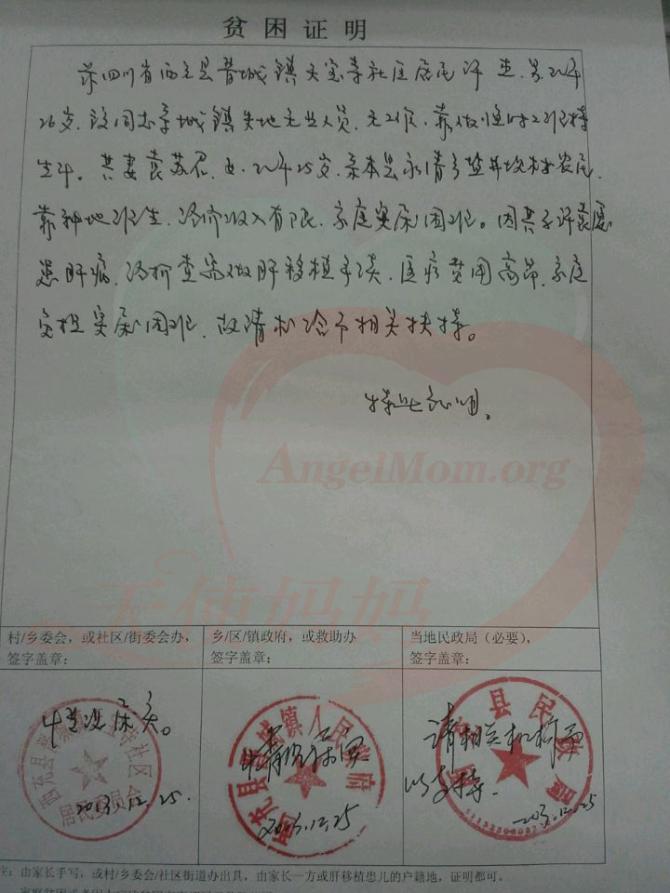 贫困证明
四川省西充县晋城镇天宝寺社区居民许 男,现年
26岁,该同志系城镇失地无业人员,无工作,靠做临时工维持
生计。其妻袁苏君,女,现年25岁,系本县永清乡盐井村农民,
靠种地维生,经济收入有限,家庭实属困难。因其子许袁
患肝病,经检查需做肝移植手术,医疗费用高昂,家庭
实属困难,故请给予相关扶持。
特此证明。
AngelMom.org
天使妈妈
村/乡委会,或社区/街委会办,
签字盖章:
乡/区/镇政府,或救助办
签字盖章:
当地民政局(必要),
签字盖章:
情况属实。
西充县晋城镇天宝寺社区
居民委员会
2013.12.25
情况属实
西充县晋城镇人民政府
2013.12.25
请相关机构予
以支持。
西充县民政局
2013.12.25
注:由家长手写,或村/乡委会/社区街道办出具,由家长一方或肝移植患儿的户籍地,证明都可。